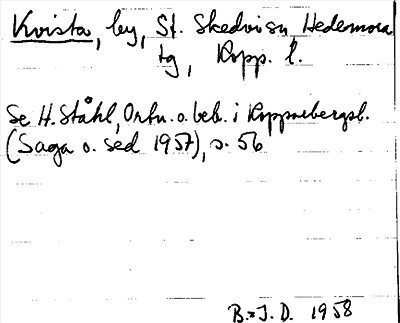 Kvista, by, St. Skedvi sn, Hedemora
tg, Kopp. l.
Se H. Ståhl, Ortn. o. beb. i Kopparbergsl.
(Saga o. sed 1957), s. 56
B.-J. D. 1958